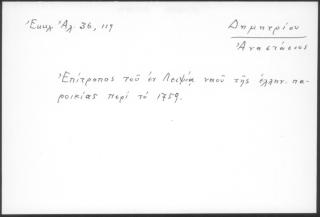 Ἐκκλ. Ἀλ. 36, 119
Δημητρίου
Ἀναστάσιος
Ἐπίτροπος τοῦ ἐν Λειψίᾳ ναοῦ τῆς ἑλλην. πα-
ροικίας περί τό 1759.